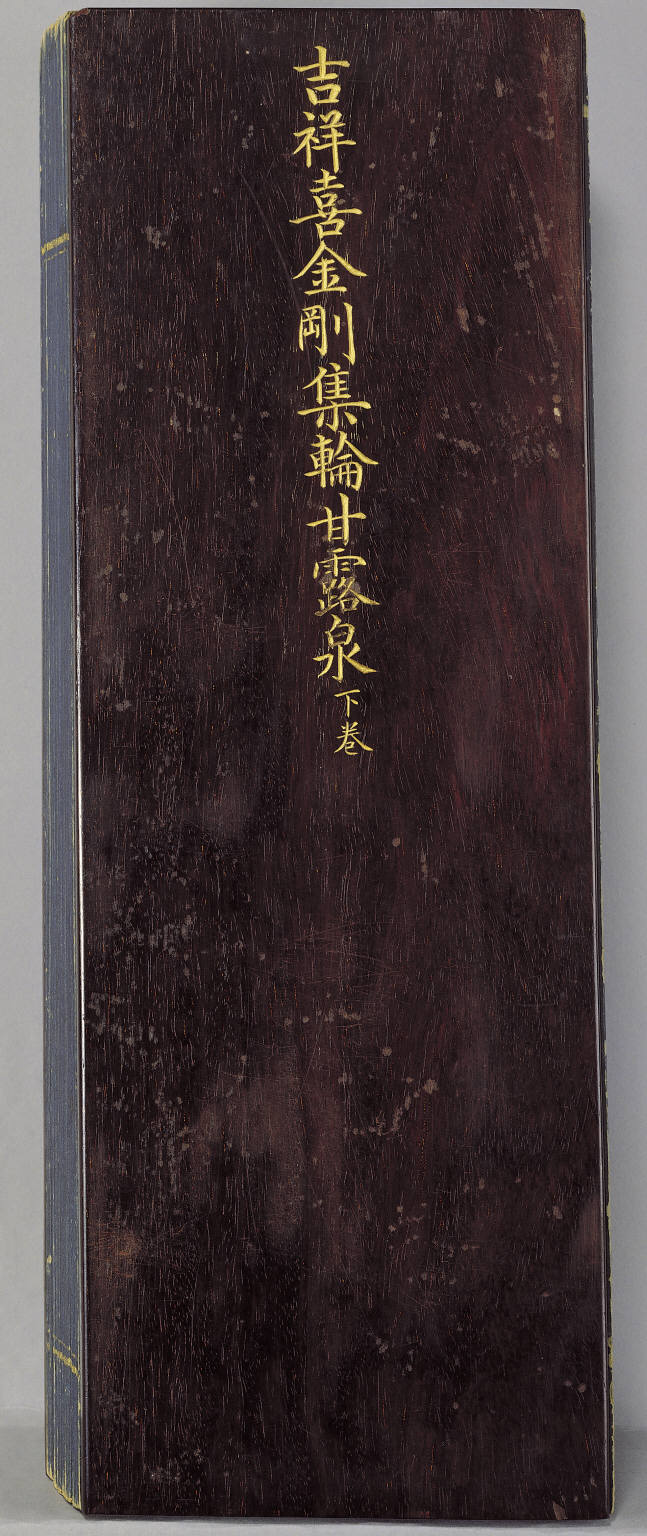 吉祥喜金剛集輪甘露泉下卷